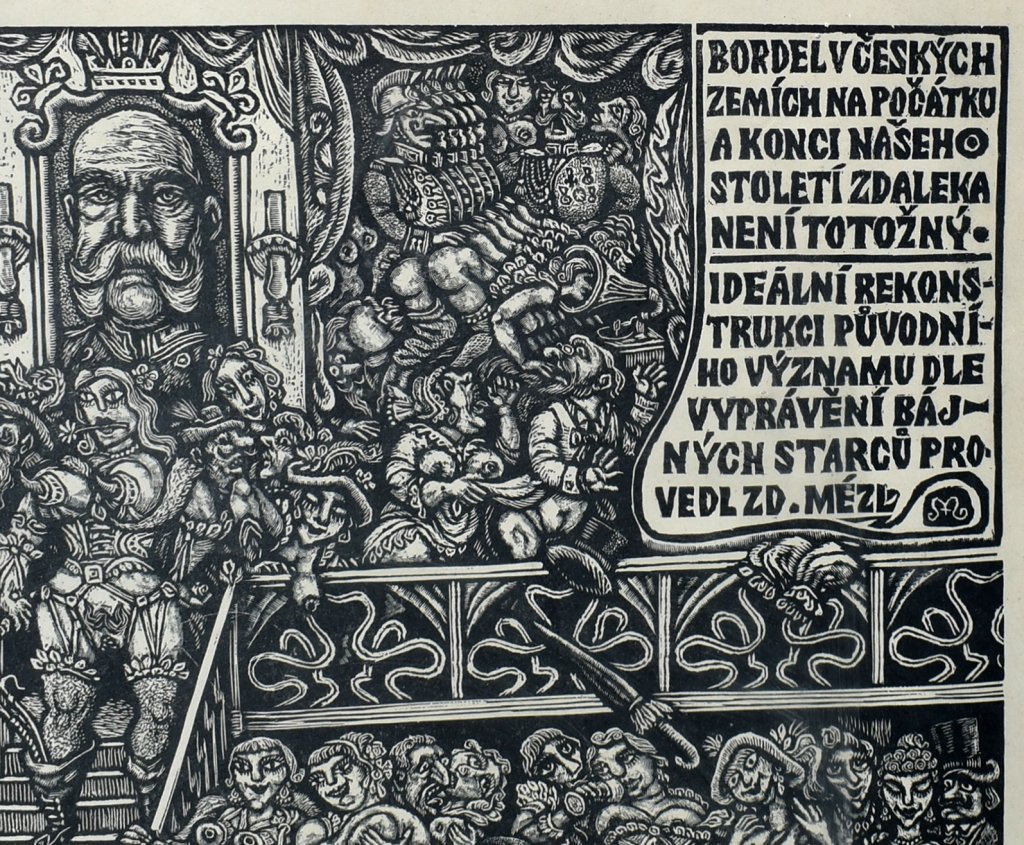 BORDEL V ČESKÝCH
ZEMÍCH NA POČÁTKU
A KONCI NAŠEHO
STOLETÍ ZDALEKA
NENÍ TOTOŽNÝ.
IDEÁLNÍ REKONS-
TRUKCI PŮVODNÍ-
HO VÝZNAMU DLE
VYPRÁVĚNÍ BÁJ-
NÝCH STARCŮ PRO-
VEDL ZD. MÉZL